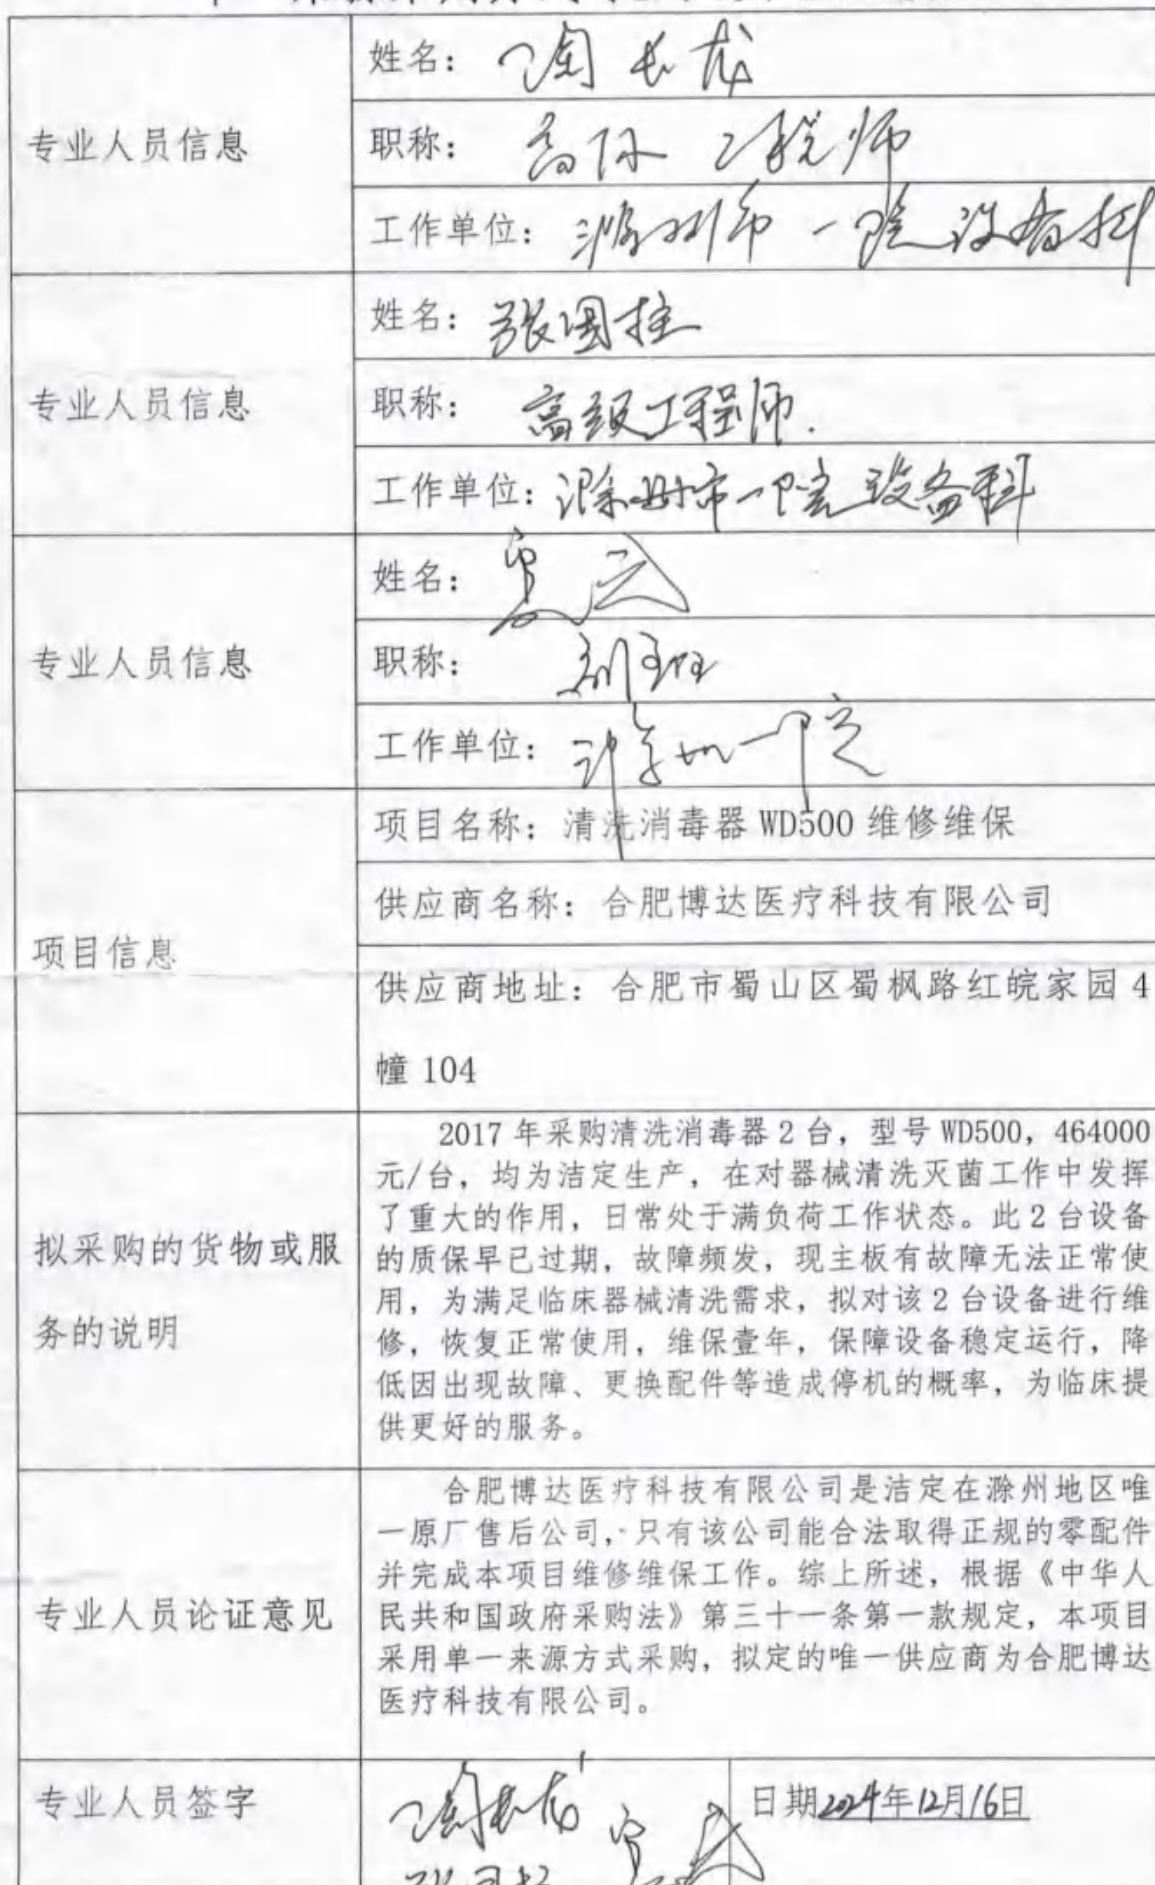 专业人员信息
姓名：陶长龙
职称：高级工程师
工作单位：滁州市一院设备科
专业人员信息
姓名：张国柱
职称：高级工程师.
工作单位：滁州市一院设备科
专业人员信息
姓名：
职称：副主任
工作单位：
项目信息
项目名称：清洗消毒器 WD500 维修维保
供应商名称：合肥博达医疗科技有限公司
供应商地址：合肥市蜀山区蜀枫路红皖家园 4
幢 104
拟采购的货物或服
务的说明
2017 年采购清洗消毒器 2 台，型号 WD500，464000
元/台，均为洁定生产，在对器械清洗灭菌工作中发挥
了重大的作用，日常处于满负荷工作状态。此 2 台设备
的质保早已过期，故障频发，现主板有故障无法正常使
用，为满足临床器械清洗需求，拟对该 2 台设备进行维
修，恢复正常使用，维保壹年，保障设备稳定运行，降
低因出现故障、更换配件等造成停机的概率，为临床提
供更好的服务。
专业人员论证意见
合肥博达医疗科技有限公司是洁定在滁州地区唯
一原厂售后公司，只有该公司能合法取得正规的零配件
并完成本项目维修维保工作。综上所述，根据《中华人
民共和国政府采购法》第三十一条第一款规定，本项目
采用单一来源方式采购，拟定的唯一供应商为合肥博达
医疗科技有限公司。
专业人员签字
陶长龙
日期2024年12月16日